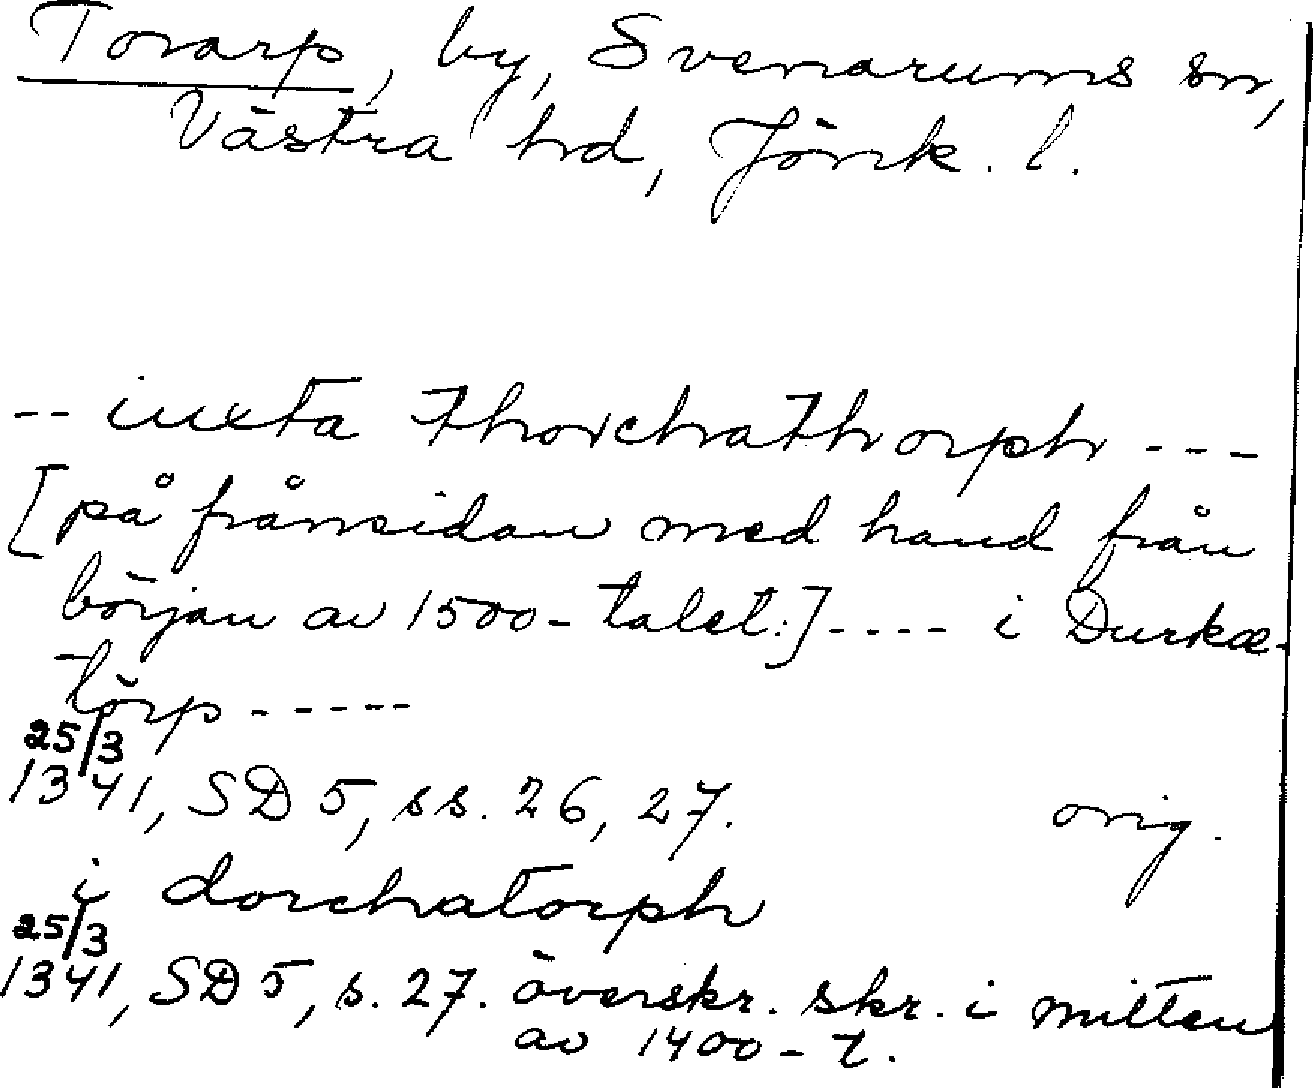 Torarp, by, Svenarums sn,
Västra hd, Jönk. l.
-- iuxta thorchathorph ---
[på frånsidan med hand från
början av 1500-talet:] ---- i Durkæ-
törp -----
25/3
1341, SD 5, ss. 26, 27. orig.
i dorchatorph
25/3
1341, SD 5, s. 27. överskr. skr. i mitten
av 1400-t.